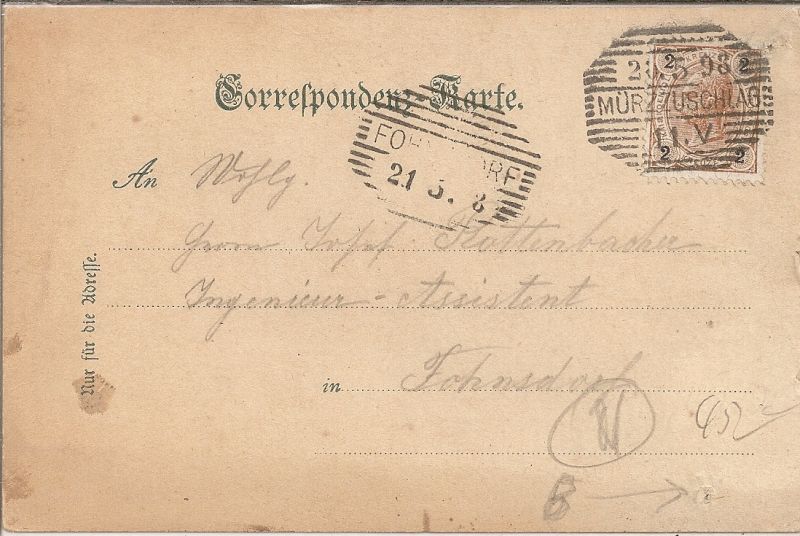 Correspondenz-Karte.
2 2
98
MÜRZZUSCHLAG
1.V
2 2
FOHNSDORF
21 5. 8
An Wohlg.
Herrn Josef Plottenbacher
Ingenieur-Assistent
in Fohnsdorf
Nur für die Adresse.
B